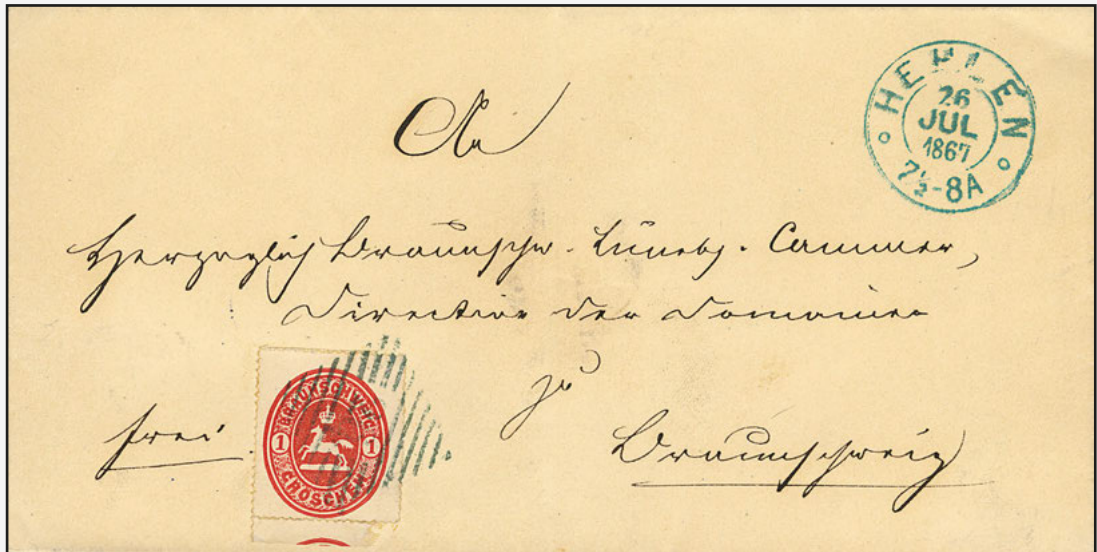 HEHLEN
26
JUL
1867
7½-8A
An
Herzoglich Braunschw. Lünebg. Cammer,
Direction der Domainen
zu
Braunschweig
frei
BRAUNSCHWEIG
1 1
GROSCHEN